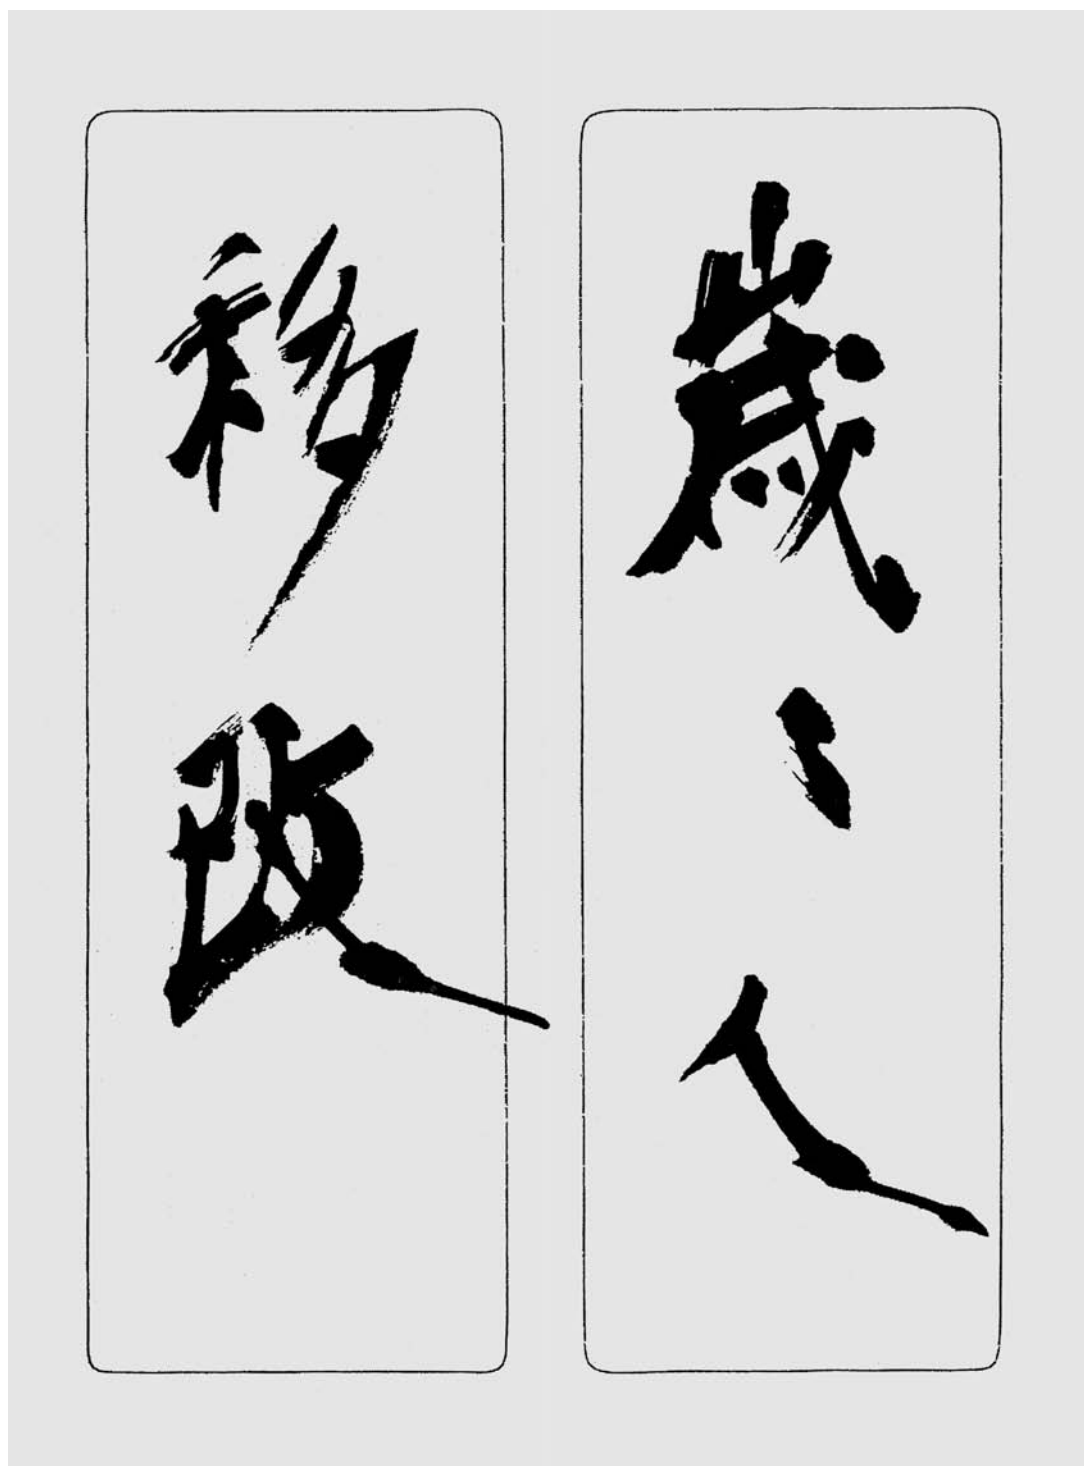 歲〻人
移改